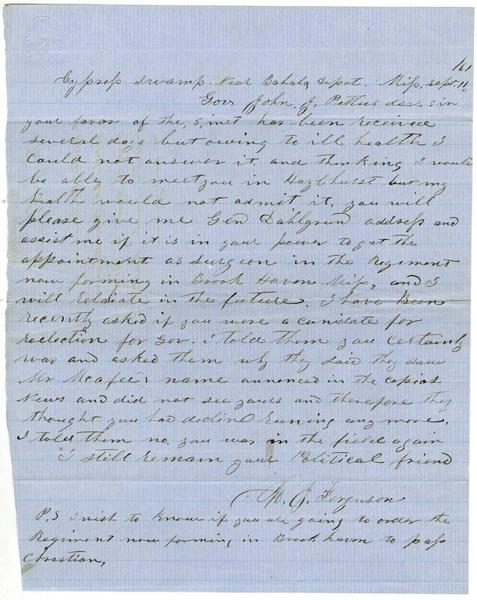 /61
Cypress Swamp. Near Bahala Depot. Miss, Sept. 11,
Gov. John, J, Pettus dear, Sir
your favor of the, 5, inst has been received
several days but owing to ill health I
could not answer it, and thinking I would
be able to meet you in Hazlhurst but my
health would not admit it, you will
please give me Gen Dahlgren address and
assist me if it is in your power to get the
appointment as surgeon in the Regiment
now forming in Brook Haven Miss, and I
will retaliate in the future. I have been
recently asked if you were a canidate for
reelection for Gov. I told them you certainly
was and asked them why they said they saw
Mr McAfee's name annonced in the copias
News and did not see yours and therefore they
thought you had declined runing any more.
I told them no, you was in the field again
I still remain your Political friend
M. J. Ferguson
P,S I wish to know if you are going to order the
Regiment now forming in Brook haven to pass
Christian,